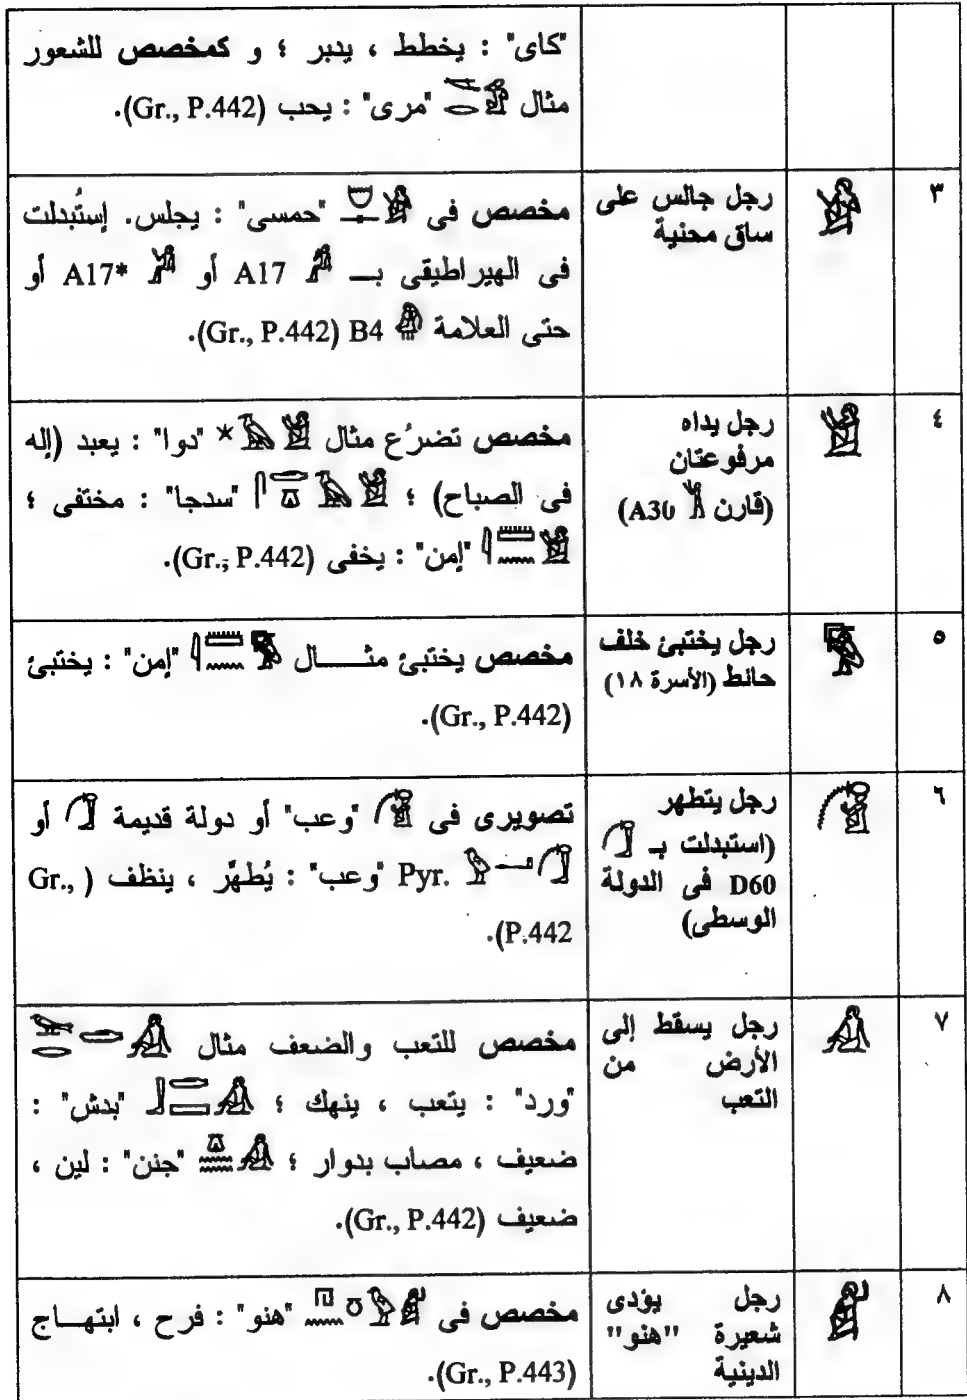 "كاى" : يخطط ، يدبر ؛ و كمخصص للشعور
مثال "مرى" : يحب (Gr., P.442).
٣
رجل جالس على
ساق محنية
مخصص فى "حمسى" : يجلس. إستُبدلت
فى الهيراطيقى بـ A17 أو A17* أو
حتى العلامة B4 (Gr., P.442).
٤
رجل يداه
مرفوعتان
(قارن A30)
مخصص تضرُع مثال "دوا" : يعبد (إله
فى الصباح) ؛ "سدجا" : مختفى ؛
"إمن" : يخفى (Gr., P.442).
٥
رجل يختبئ خلف
حائط (الأسرة ١٨)
مخصص يختبئ مثـــال "إمن" : يختبئ
(Gr., P.442).
٦
رجل يتطهر
(استبدلت بـ
D60 فى الدولة
الوسطى)
تصويرى فى "وعب" أو دولة قديمة أو
Pyr. "وعب" : يُطهَّر ، ينظف (Gr.,
P.442).
٧
رجل يسقط إلى
الأرض من
التعب
مخصص للتعب والضعف مثال
"ورد" : يتعب ، ينهك ؛ "بدش" :
ضعيف ، مصاب بدوار ؛ "جنن" : لين ،
ضعيف (Gr., P.442).
٨
رجل يؤدى
شعيرة "هنو"
الدينية
مخصص فى "هنو" : فرح ، ابتهـــاج
(Gr., P.443).